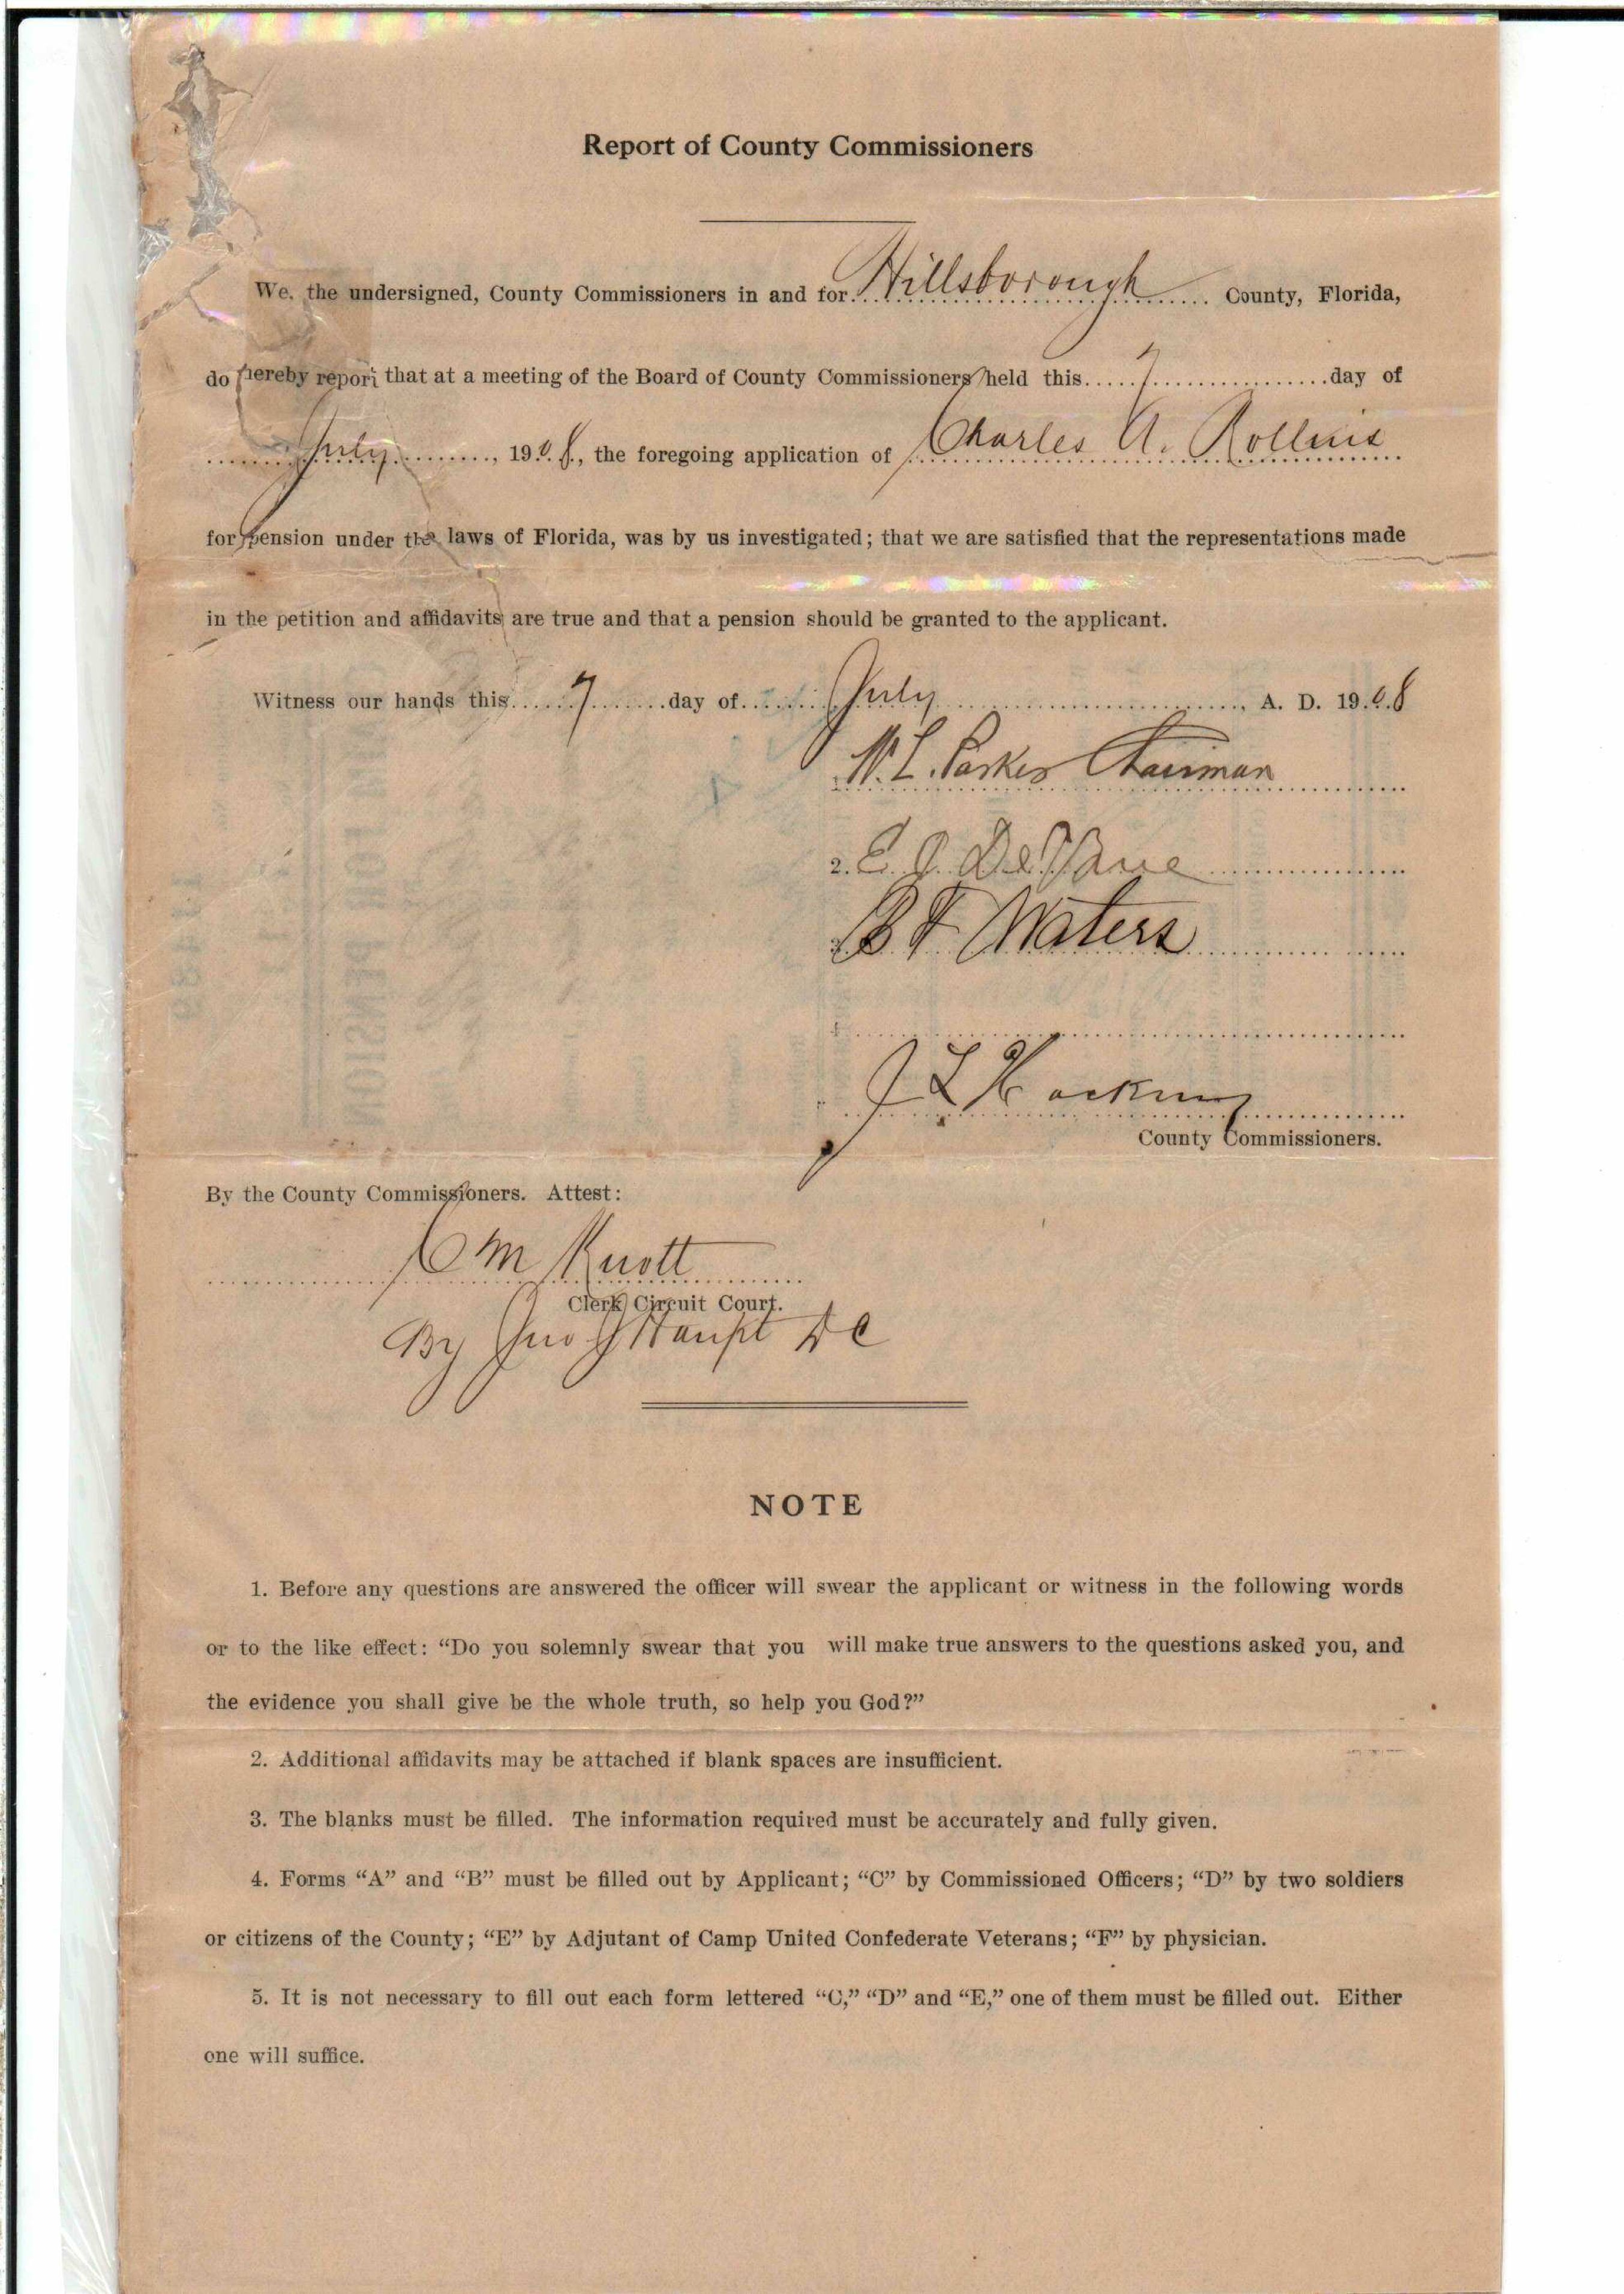 Report of County Commissioners
We, the undersigned, County Commissioners in and for Hillsborough County, Florida,
do hereby report that at a meeting of the Board of County Commissioners held this 7 day of
July, 1908, the foregoing application of Charles A. Rollins
for pension under the laws of Florida, was by us investigated; that we are satisfied that the representations made
in the petition and affidavits are true and that a pension should be granted to the applicant.
Witness our hands this 7 day of July, A. D. 1908
W. L. Parker Chairman
2. E. J. DeVane
B F Waters
J L Hackney
County Commissioners.
By the County Commissioners. Attest:
C M Knott
Clerk Circuit Court.
By Jno J Haupt DC
NOTE
1. Before any questions are answered the officer will swear the applicant or witness in the following words
or to the like effect: “Do you solemnly swear that you will make true answers to the questions asked you, and
the evidence you shall give be the whole truth, so help you God?”
2. Additional affidavits may be attached if blank spaces are insufficient.
3. The blanks must be filled. The information required must be accurately and fully given.
4. Forms “A” and “B” must be filled out by Applicant; “C” by Commissioned Officers; “D” by two soldiers
or citizens of the County; “E” by Adjutant of Camp United Confederate Veterans; “F” by physician.
5. It is not necessary to fill out each form lettered “C,” “D” and “E,” one of them must be filled out. Either
one will suffice.